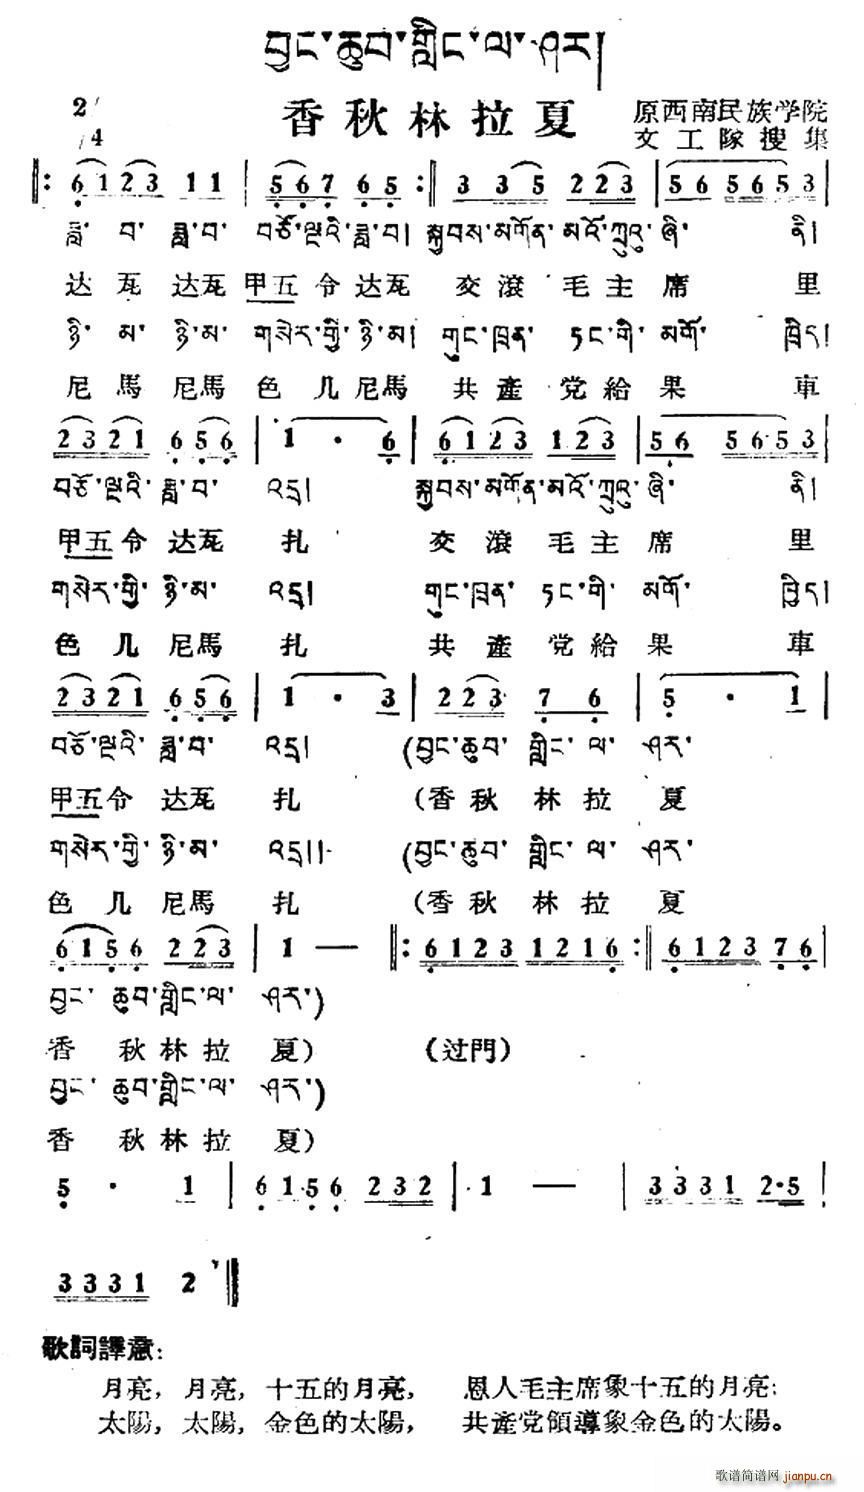 བྱང་ཆུབ་གླིང་ལ་ཤར།
香秋林拉夏
原西南民族学院
文工隊搜集
2/4
6123 11 567 65 335 223 56 5653
ཟླ་བ་ ཟླ་བ་ བཅོ་ལྔའི་ཟླ་བ། སྐྱབས་མགོན་མའོ་ཀྲུའུ་ཞི་ ནི།
达瓦 达瓦 甲五令达瓦 交滚毛主席里
ཉི་མ་ ཉི་མ་ གསེར་གྱི་ཉི་མ། གུང་ཁྲན་ ཏང་གི་ མགོ་ ཁྲིད།
尼馬尼馬色儿尼馬 共產党給果車
2321 656 1 · 6 6123 123 56 5653
བཅོ་ལྔའི་ ཟླ་བ་ འདྲ། སྐྱབས་མགོན་མའོ་ཀྲུའུ་ཞི་ ནི།
甲五令达瓦扎 交滚毛主席里
གསེར་གྱི་ ཉི་མ་ འདྲ། གུང་ཁྲན་ ཏང་གི་ མགོ་ ཁྲིད།
色儿尼馬扎 共產党給果車
2321 656 1 · 3 223 7 6 5 · 1
བཅོ་ལྔའི་ ཟླ་བ་ འདྲ། (བྱང་ཆུབ་ གླིང་ ལ་ ཤར་
甲五令达瓦扎 (香秋林拉夏
གསེར་གྱི་ ཉི་མ་ འདྲ།། (བྱང་ཆུབ་ གླིང་ ལ་ ཤར་
色儿尼馬扎 (香秋林拉夏
6156 223 1 — 6123 1216 6123 76
བྱང་ ཆུབ་གླིང་ལ་ ཤར་)
香秋林拉夏) (过門)
བྱང་ ཆུབ་གླིང་ལ་ ཤར་)
香秋林拉夏)
5 · 1 6156 232 1 — 3331 2·5
3331 2
歌詞譯意:
月亮，月亮，十五的月亮， 恩人毛主席象十五的月亮；
太陽，太陽，金色的太陽， 共產党領導象金色的太陽。
歌谱简谱网 jianpu.cn